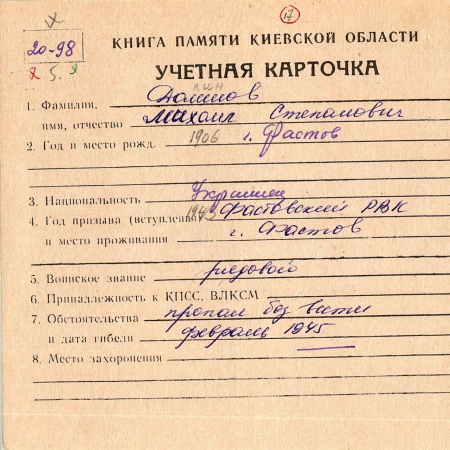 17
20-98
КНИГА ПАМЯТИ КИЕВСКОЙ ОБЛАСТИ
УЧЕТНАЯ КАРТОЧКА
1. Фамилия,
имя, отчество Михаил Степанович
2. Год и место рожд. 1906 г. Фастов
3. Национальность Украинец
4. Год призыва (вступления) Фастовский РВК
и место проживания г. Фастов
5. Воинское звание рядовой
6. Принадлежность к КПСС, ВЛКСМ
7. Обстоятельства пропал без вести
и дата гибели февраль 1945
8. Место захоронения